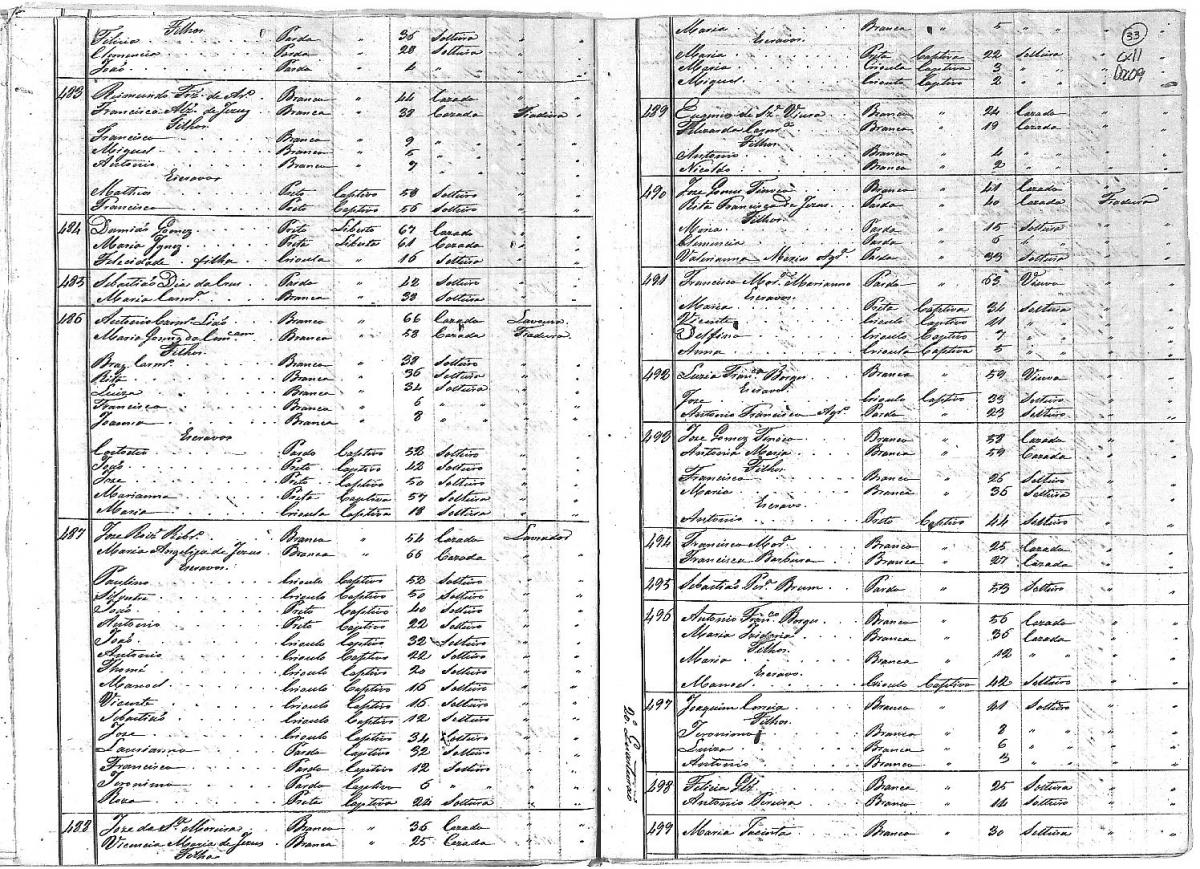 Filhos
Felicia Parda " 36 Solteira " "
Clemencia Parda " 28 Solteira " "
João Pardo " 4 " " "
483 Reimundo Frz. de Ar.º Branco " 44 Cazado "
Francisca de Jezuz Branca " 33 Cazada Fiadeira "
Filhos
Francisco Branco " 9 " " "
Miguel Branco " 5 " " "
Antonio Branco " 7 " " "
Escravos
Mathias Preto Captivo 58 Solteiro "
Francisco Preto Captivo 56 Solteiro "
484 Damião Gomez Preto Liberto 67 Cazado "
Maria Ignez Preta Liberta 61 Cazada "
Felicidade filha Crioula " 16 Solteira "
485 Sebastião Dias da Crus Pardo " 42 Solteiro "
Maria Carm.º Branca " 38 Solteira "
486 Antonio Carm.º Liás Branco " 66 Cazado
Maria Gomez da Branca " 58 Cazada Fiadeira
Filhos
Braz Carm.º Branco " 38 Solteiro "
Rita Branca " 36 Solteira "
Luiza Branca " 34 Solteira "
Francisca Branca " 6 " " "
Joanna Branca " 8 " " "
Escravos
Custodio Pardo Captivo 52 Solteiro "
João Preto Captivo 42 Solteiro "
Joze Preto Captivo 50 Solteiro "
Marianna Preta Captiva 57 Solteira "
Maria Crioula Captiva 18 Solteira "
487 Joze Branco " 54 Cazado Lavrador
Maria Angelica de Jezus Branca " 66 Cazada "
Escravos
Paulino Crioulo Captivo 52 Solteiro "
Crioulo Captivo 50 Solteiro "
João Preto Captivo 40 Solteiro "
Antonio Preto Captivo 22 Solteiro "
João Crioulo Captivo 32 Solteiro "
Antonio Crioulo Captivo 22 Solteiro "
Thomé Crioulo Captivo 20 Solteiro "
Manoel Crioulo Captivo 16 Solteiro "
Vicente Crioulo Captivo 16 Solteiro "
Sebastião Crioulo Captivo 12 Solteiro "
Joze Crioulo Captivo 34 Solteiro "
Laurianno Pardo Captivo 32 Solteiro "
Francisco Pardo Captivo 12 Solteiro "
Jeronimo Pardo Captivo 6 " "
Roza Preta Captiva 24 Solteira "
488 Joze da S.ª Moreira Branco " 36 Cazado "
Vicencia Maria de Jezus Branca " 25 Cazada "
Filha
Maria Branca " 5 " "
Escravos
Maria Preta Captiva 22 Solteira "
Maria Crioula Captiva 3 " "
Miguel Crioulo Captivo 2 " "
33
CX11
D209
489 Eugenio de Sz. Viura Branco " 24 Cazado "
Branca " 19 Cazada "
Filhos
Antonio Branco " 4 " "
Branco " 2 " "
490 Joze Gomes Branco " 41 Cazado "
Rita Francisca de Jezus Parda " 40 Cazada Fiadeira
Filhos
Maria Parda " 15 Solteira "
Clemencia Parda " 6 " "
Valerianna Maria Parda " 33 Solteira "
491 Francisca Marianna Parda " 53 Viuva "
Escravos
Maria Preta Captiva 34 Solteira "
Vicente Crioulo Captivo 11 " "
Delfino Crioulo Captivo 7 " "
Anna Crioula Captiva 5 " "
492 Luzia Fran.ca Borges Branca " 59 Viuva "
Escravo
Joze Crioulo Captivo 33 Solteiro "
Antonio Francisco Pardo " 23 Solteiro "
493 Joze Gomez Branco " 58 Cazado "
Antonia Maria Branca " 59 Cazada "
Filhos
Francisco Branco " 26 Solteiro "
Maria Branca " 36 Solteira "
Escravo
Antonio Preto Captivo 44 Solteiro "
494 Francisco Branco " 25 Cazado "
Francisca Barbara Branca " 27 Cazada "
495 Sebastião Per.ª Brum Pardo " 53 Solteiro "
496 Antonio Fran.co Borges Branco " 56 Cazado "
Maria Branca " 36 Cazada "
Filhos
Maria Branca " 12 " "
Escravo
Manoel Crioulo Captivo 42 Solteiro "
497 Joaquim Correia Branco " 41 Solteiro "
Filhos
Jeronimo Branco " 8 " "
Luiza Branca " 6 " "
Antonio Branco " 3 " "
498 Felicia Branca " 25 Solteira "
Antonio Pereira Branco " 14 Solteiro "
499 Maria Jacinta Branca " 30 Solteira "
2º Quarteirão